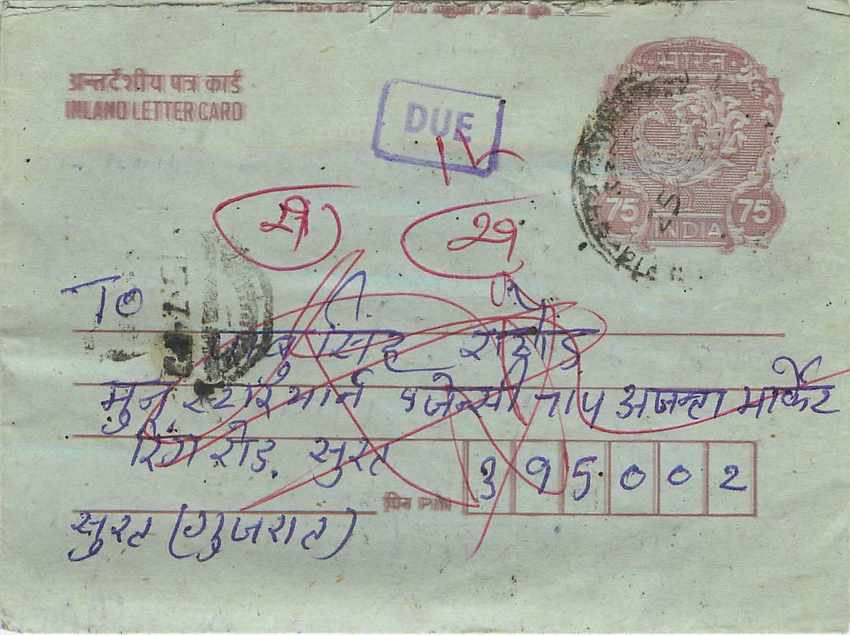 अन्तर्देशीय पत्र कार्ड
INLAND LETTER CARD
DUE
भारत
75 75
INDIA
29
TO
सिंह राठौड़
मुन स्टार यार्न एजेन्सी 714 अजन्ता मार्केट
रिंग रोड. सुरत
पिन PIN 395002
सुरत (गुजरात)